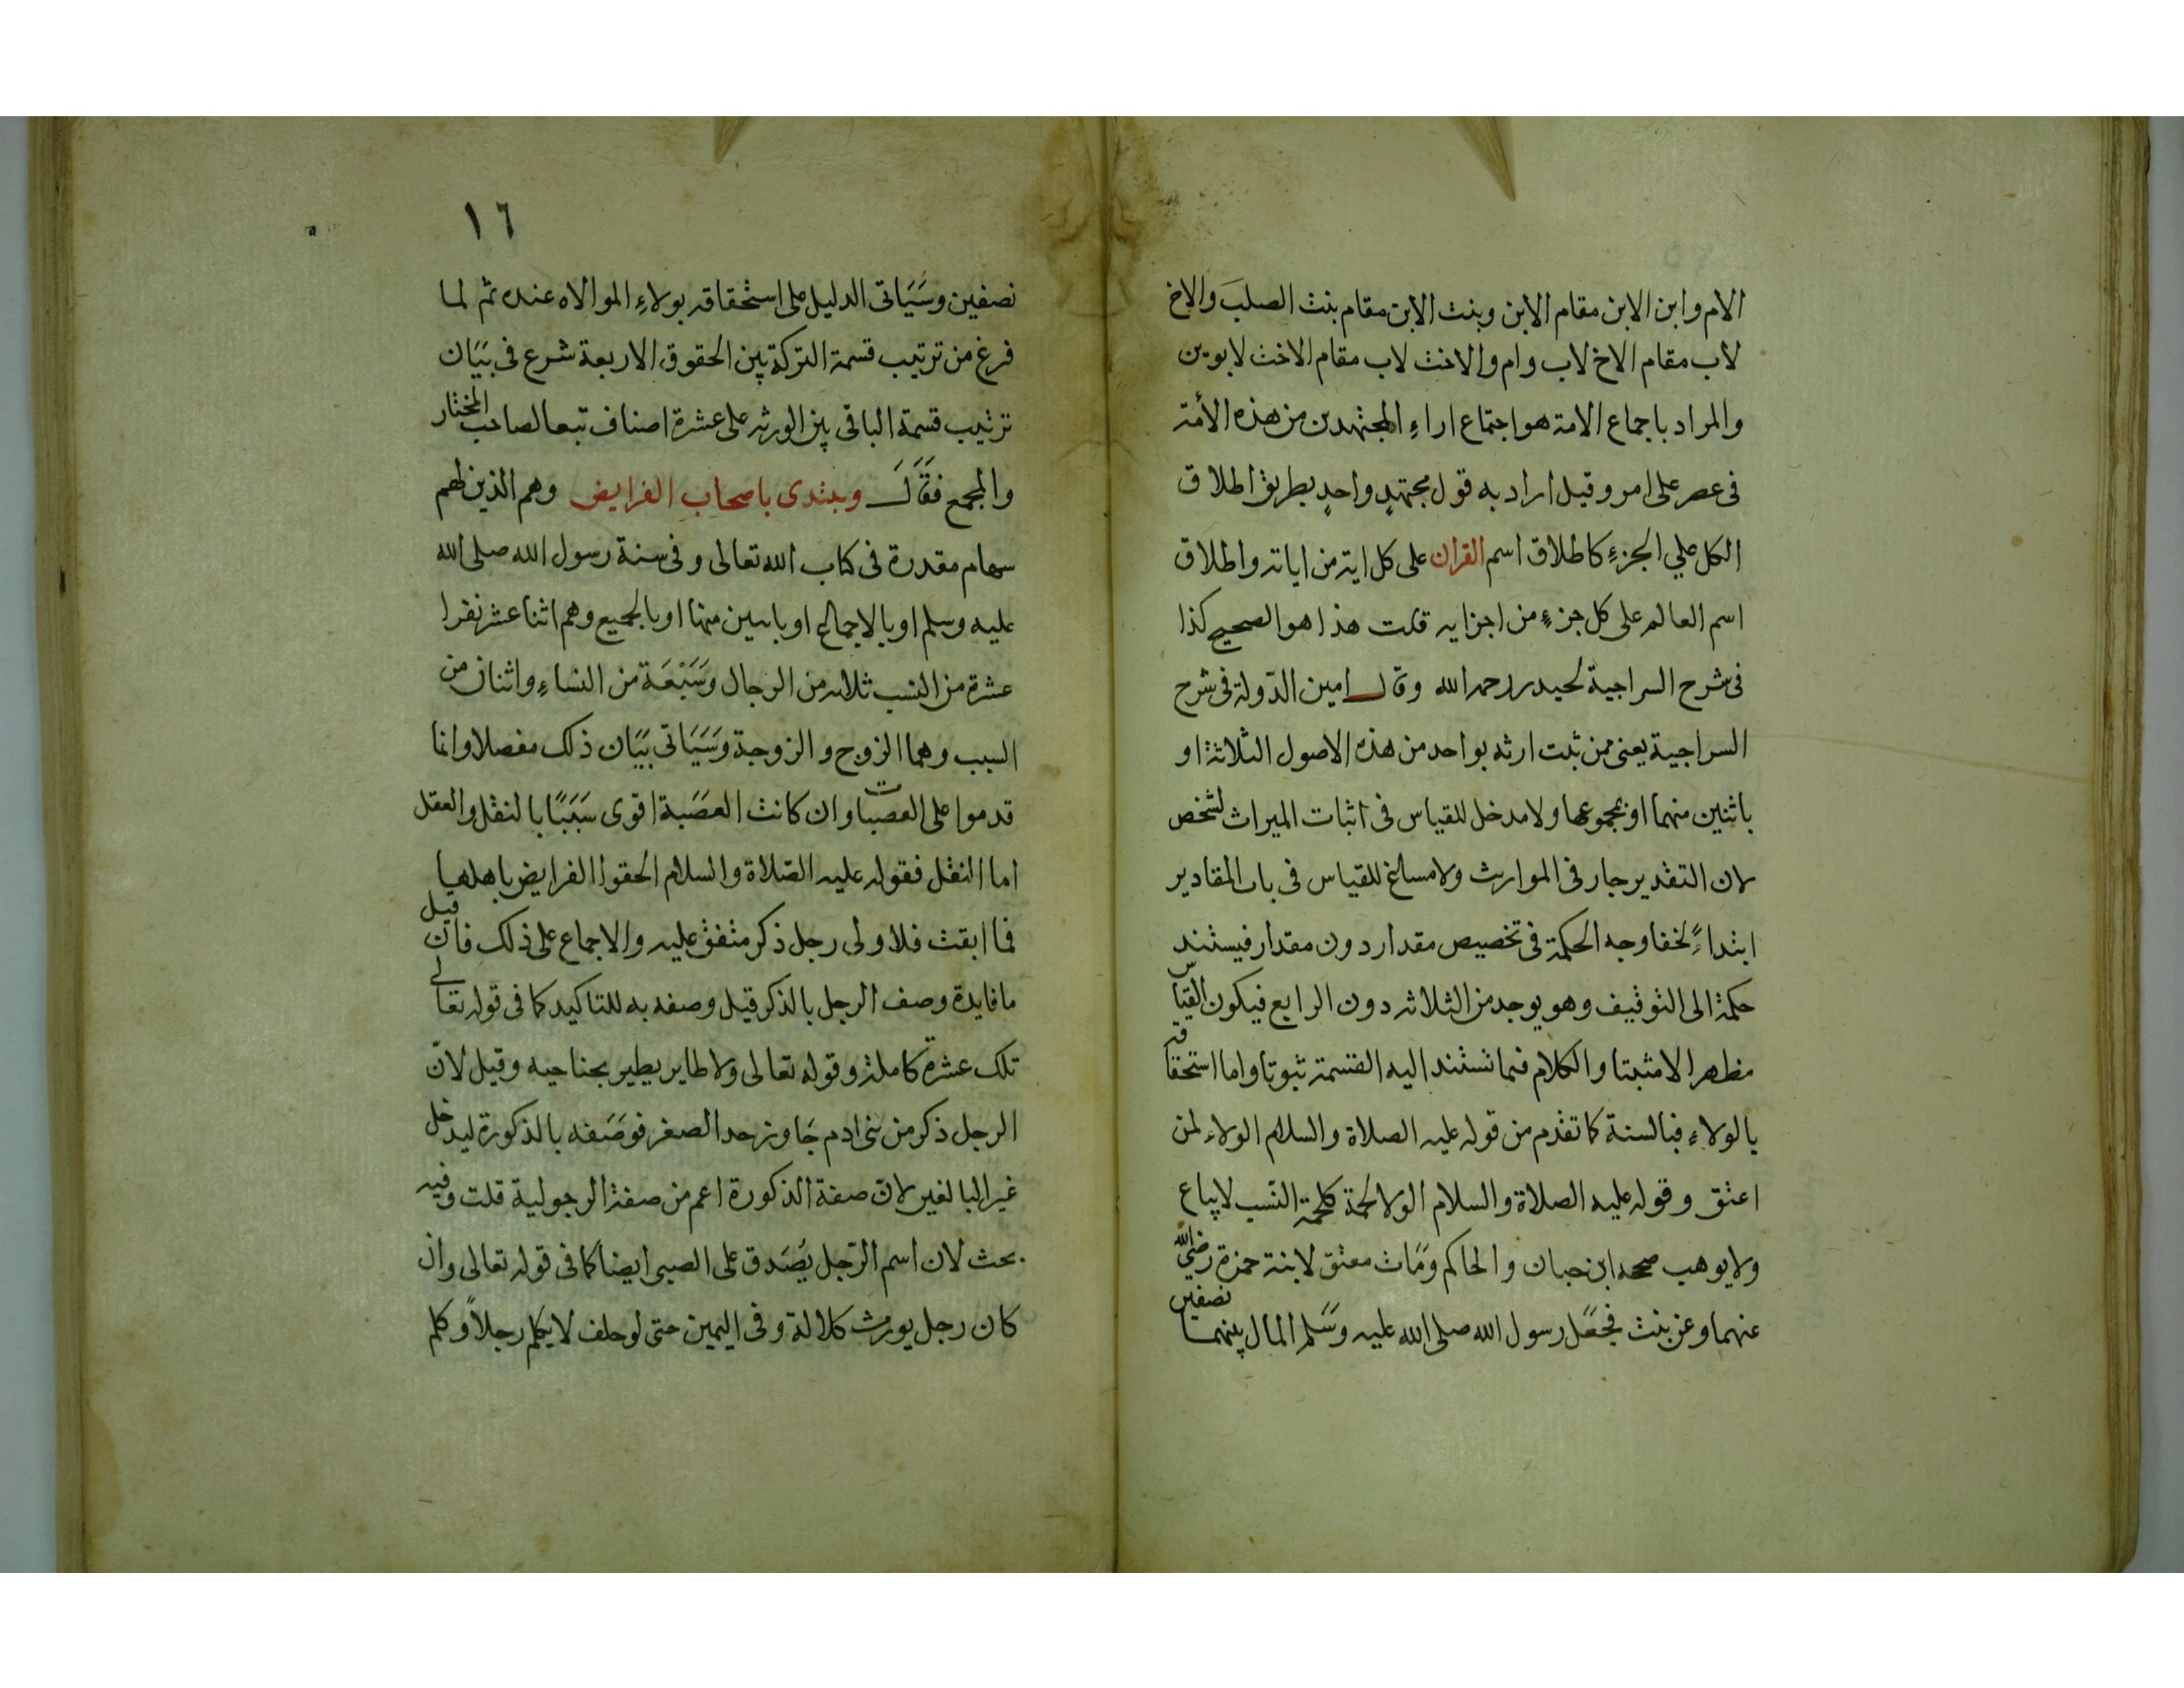 الام وابن الابن مقام الابن وبنت الابن مقام بنت الصلب والاخ
لاب مقام الاخ لاب وام والاخت لاب مقام الاخت لابوين
والمراد باجماع الامة هو اجتماع اراء المجتهدين من هذه الأمة
فى عصر على امر وقيل اراد به قول مجتهد واحد بطريق اطلاق
الكل علي الجزء كاطلاق اسم القران على كل اية من اياته واطلاق
اسم العالم على كل جزء من اجزايه قلت هذا هو الصحيح كذا
فى شرح السراجية لحيدر رحمه الله وقال امين الدولة فى شرح
السراجية يعنى ممن ثبت ارثه بواحد من هذه الاصول الثلاثة او
باثنين منهما او بمجموعها ولا مدخل للقياس فى اثبات الميراث لشخص
لان التقدير جار فى الموارث ولا مساغ للقياس فى باب المقادير
ابتداءً لخفا وجه الحكمة فى تخصيص مقدار دون مقدار فيستند
حكمة الى التوقيف وهو يوجد من الثلاثه دون الرابع فيكون القياس
مظهرا لا مثبتا والكلام فيما تستند اليه القسمة ثبوتا واما استحقاقه
بالولاء فبالسنة كما تقدم من قوله عليه الصلاة والسلام الولاء لمن
اعتق وقوله عليه الصلاة والسلام الولا لحمة كلحمة النسب لا يباع
ولا يوهب صححه ابن حبان والحاكم ومات معتق لابنة حمزة رضي الله
عنهما وعن بنت فجعل رسول الله صلى الله عليه وسلم المال بينهما نصفين
١٦
نصفين وسياتى الدليل على استحقاقه بولاء الموالاه عنده ثم لما
فرغ من ترتيب قسمة التركة بين الحقوق الاربعة شرع فى بيان
ترتيب قسمة الباقى بين الورثه على عشرة اصناف تبعا لصاحب المختار
والمجمع فقال ويبتدى باصحاب الفرايض وهم الذين لهم
سهام مقدرة فى كتاب الله تعالى و فى سنة رسول الله صلى الله
عليه وسلم او بالاجماع او باثنين منها او بالجميع وهم اثنا عشر نفرا
عشرة من النسب ثلاثه من الرجال وسبعة من النساء واثنان من
السبب وهما الزوج والزوجة وسياتى بيان ذلك مفصلا وانما
قدموا على العصبات وان كانت العصبة اقوى سببا بالنقل والعقل
اما النقل فقوله عليه الصلاة والسلام الحقوا الفرايض باهلها
فما ابقت فلاولى رجل ذكر متفق عليه والاجماع على ذلك فان قيل
ما فايدة وصف الرجل بالذكر قيل وصفه به للتاكيد كما فى قوله تعالى
تلك عشرة كاملة وقوله تعالى ولا طاير يطير بجناحيه وقيل لان
الرجل ذكر من بنى ادم جاوز حد الصغر فوصفه بالذكورة ليدخل
غير البالغين لان صفة الذكورة اعم من صفة الرجولية قلت وفيه
بحث لان اسم الرجل يصدق على الصبى ايضا كما فى قوله تعالى وان
كان رجل يورث كلالة وفى اليمين حتى لو حلف لا يكلم رجلاً وكلم